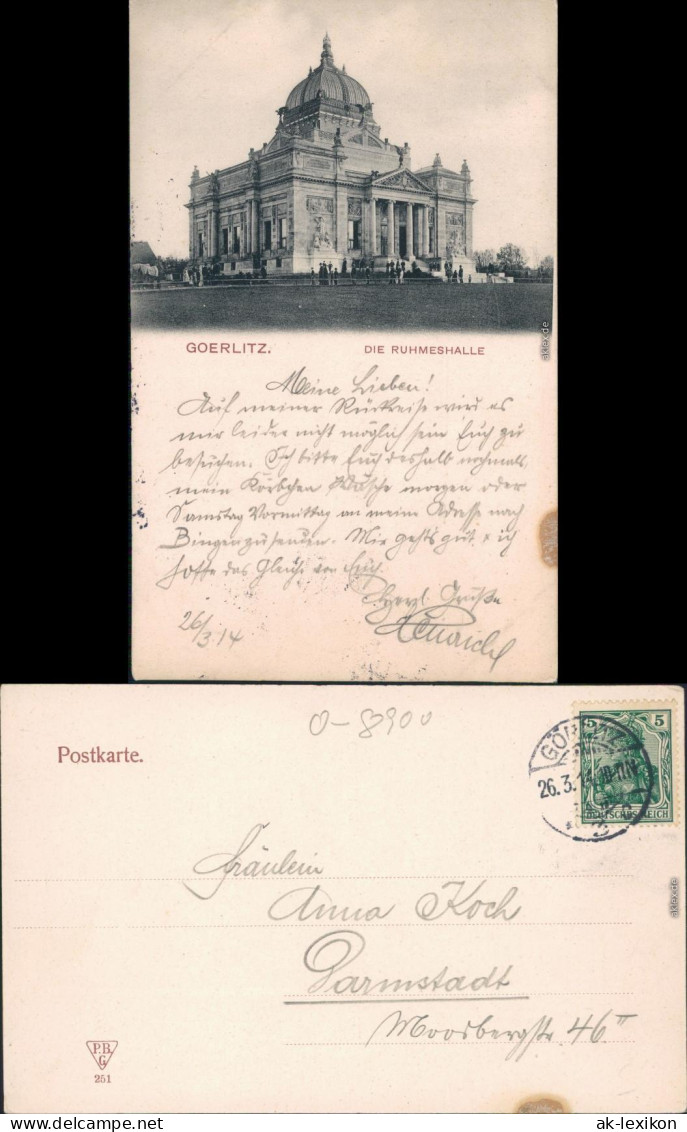 GOERLITZ. DIE RUHMESHALLE
Meine Lieben!
Auf meiner Rückreise wird es
mir leider nicht möglich sein Euch zu
besuchen. Ich bitte Euch deshalb nochmals
mein Körbchen Wäsche morgen oder
Samstag Vormittag an meine Adresse nach
Bingen zu senden. Mir gehts gut & ich
hoffe das Gleiche von Euch.
Herzl. Grüße
Heinrich
26/3.14
aklex.de
O-8900
Postkarte.
GÖRLITZ
26.3.14. 10-11N
5 5
DEUTSCHES REICH
Fräulein
Anna Koch
Darmstadt
Moosbergstr. 46 II
P.B.
G.
251
aklex.de
ak-lexikon